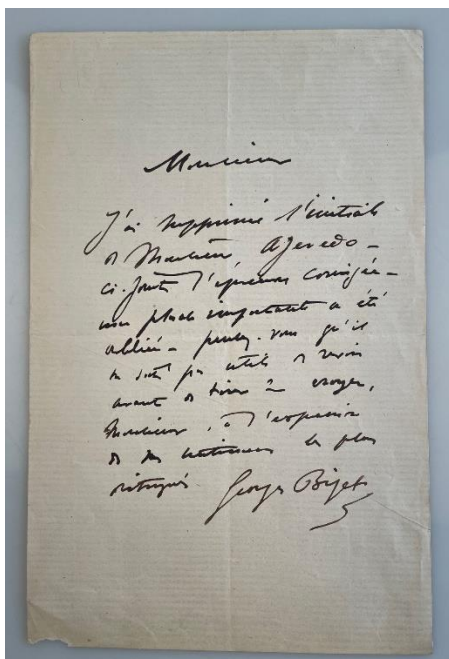 Monsieur
J'ai supprimé l'initiale
de Monsieur Azevedo -
ci-joint l'épreuve corrigée -
une phrase importante a été
oubliée - pensez-vous qu'il
ne soit pas utile de revoir
avant de tirer ? croyez,
Monsieur, à l'expression
de mes sentiments les plus
distingués.
Georges Bizet